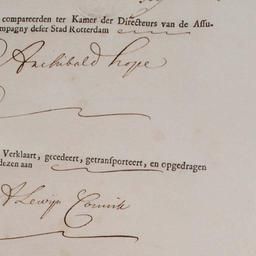 compareerden ter Kamer der Directeurs van de Assu-
mpagny deser Stad Rotterdam
Archibald Hope
Verklaart, gecedeert, getransporteert, en opgedragen
dezen aan